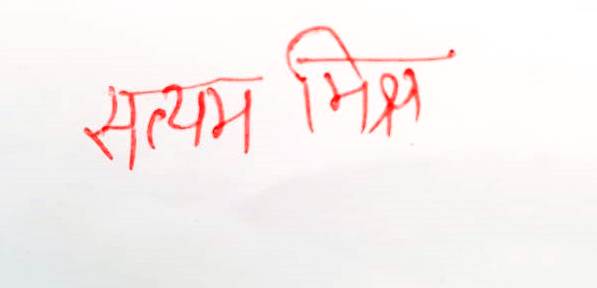 सत्यम मिश्र